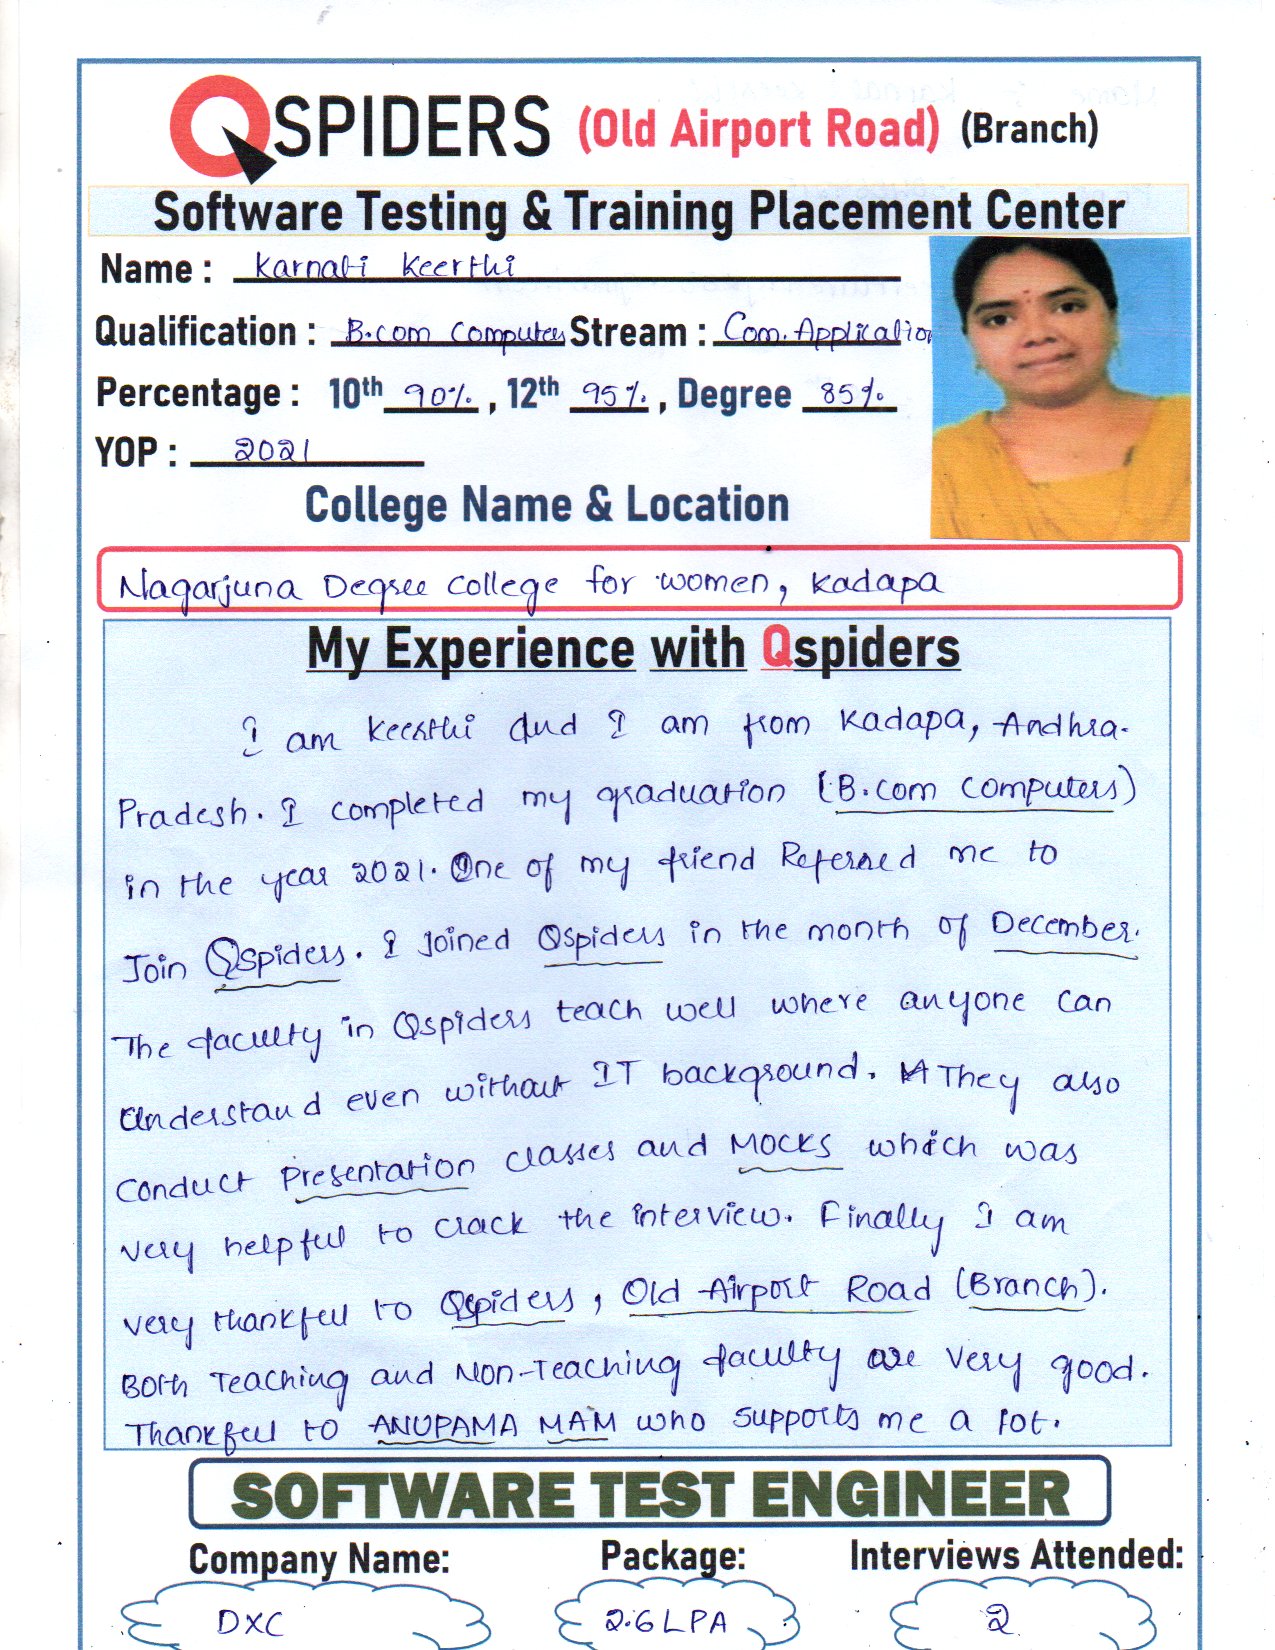 QSPIDERS (Old Airport Road) (Branch)
Software Testing & Training Placement Center
Name : Karnati Keerthi
Qualification : B.com Computers Stream : Com. Application
Percentage : 10th 90%, 12th 95%, Degree 85%
YOP : 2021
College Name & Location
Nagarjuna Degree college for women, Kadapa
My Experience with Qspiders
I am Keerthi And I am from Kadapa, Andhra-
Pradesh. I completed my graduation (B.com computers)
in the year 2021. One of my friend Referred me to
Join Qspiders. I Joined Qspiders in the month of December.
The faculty in Qspiders teach well where anyone can
Understand even without IT background. They also
Conduct Presentation classes and MOCKS which was
very helpful to crack the interview. Finally I am
very thankful to Qspiders, Old Airport Road (Branch).
Both Teaching and Non-Teaching faculty are very good.
Thankful to ANUPAMA MAM who supports me a lot.
SOFTWARE TEST ENGINEER
Company Name: Package: Interviews Attended:
DXC 2.6 LPA 2